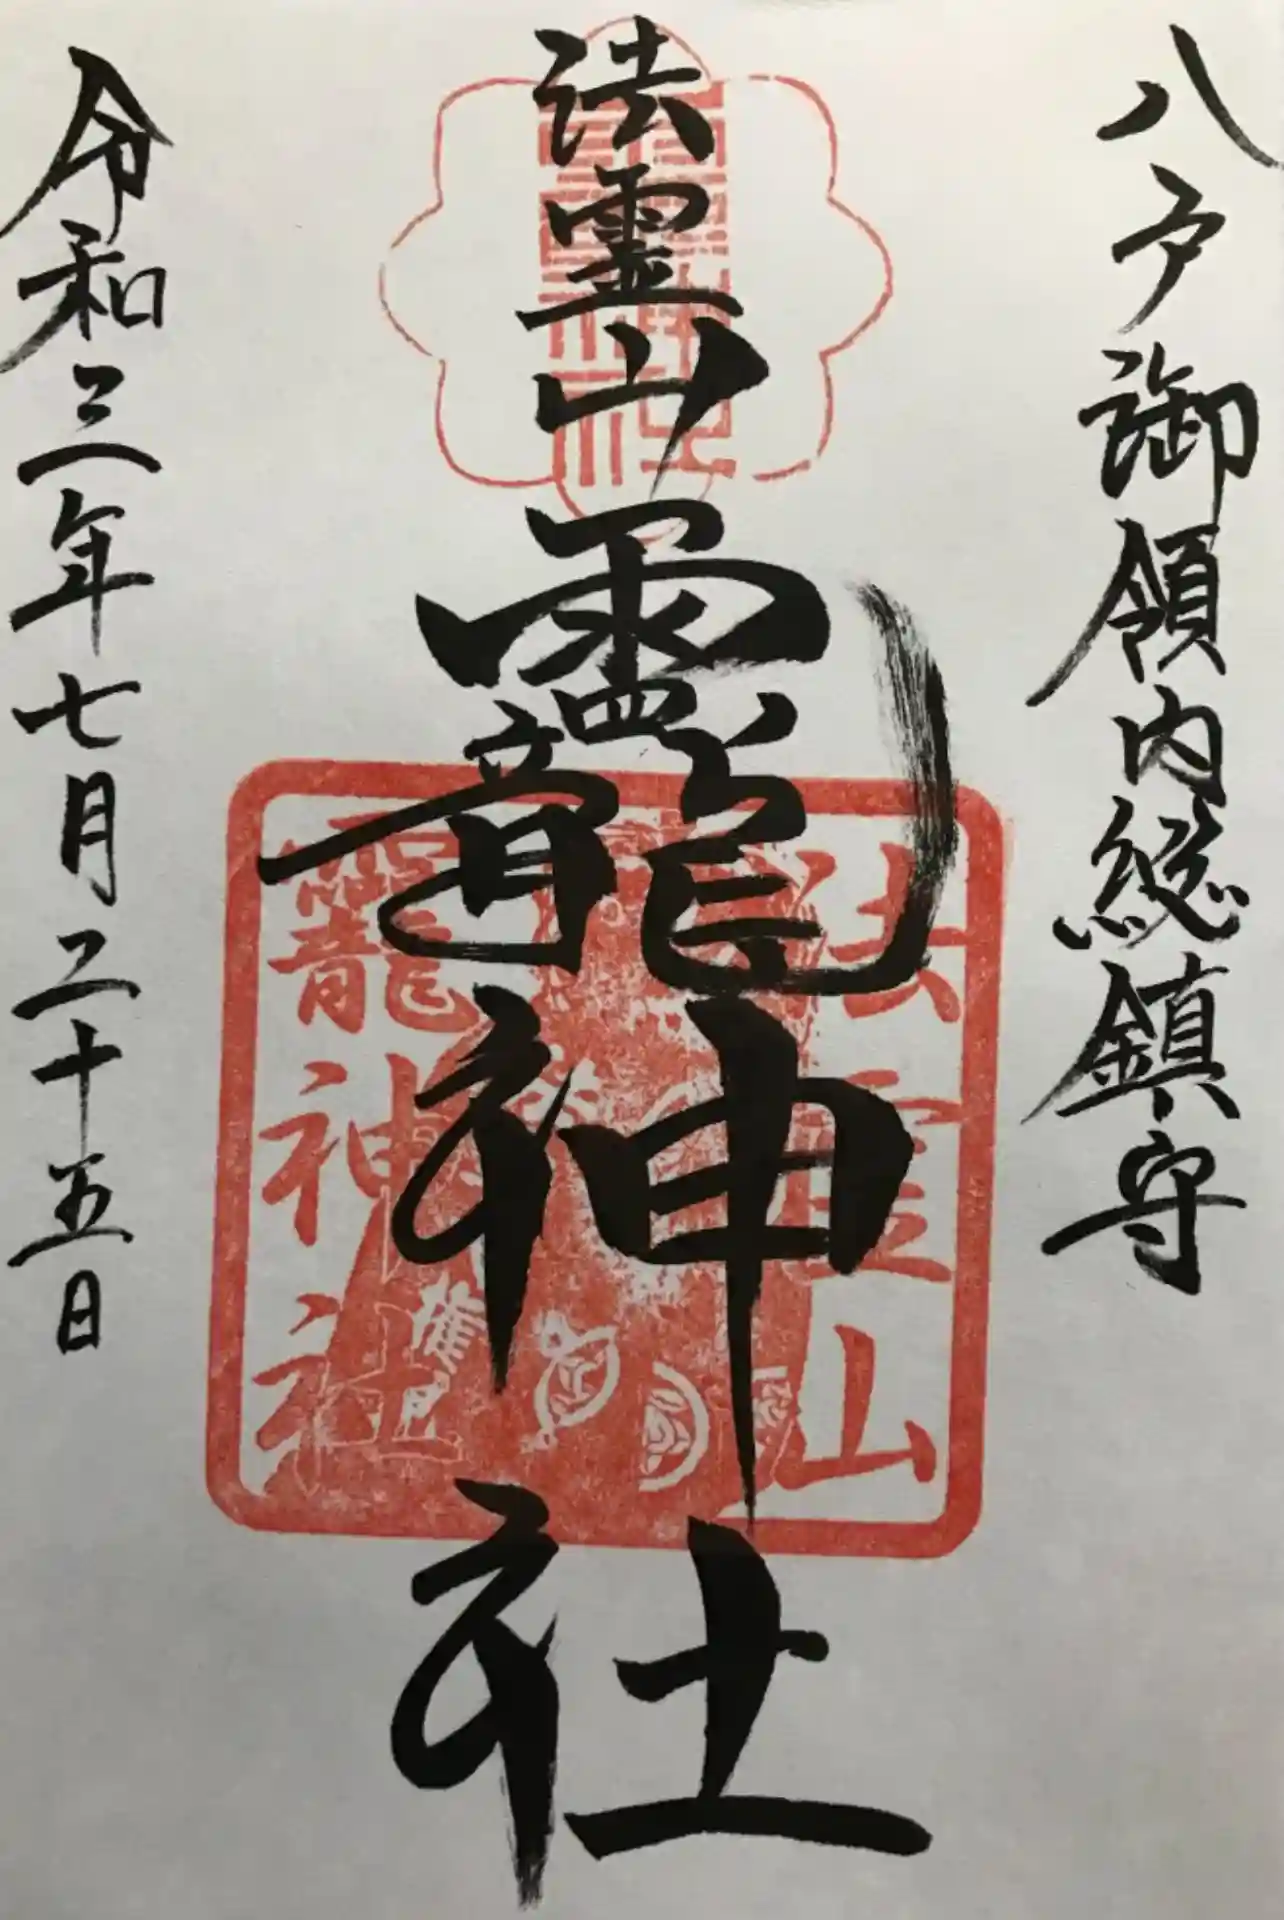 八戸御領内総鎮守
法霊山龗神社
令和三年七月二十五日
法霊山
龗神社